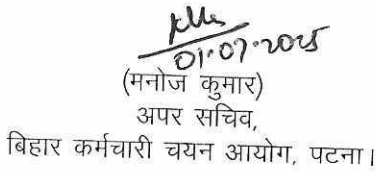 01.07.2025
(मनोज कुमार)
अपर सचिव,
बिहार कर्मचारी चयन आयोग, पटना।